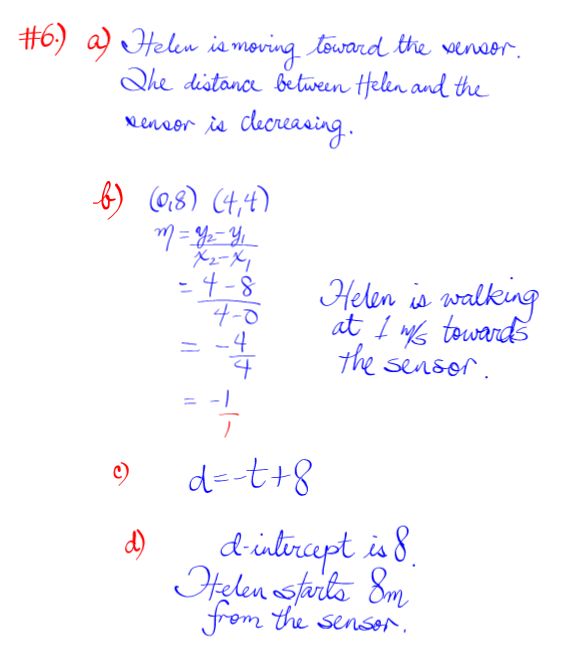 #6.) a) Helen is moving toward the sensor.
The distance between Helen and the
sensor is decreasing.
b) (0,8) (4,4)
m = y₂-y₁
x₂-x₁
= 4-8
4-0
= -4
4
= -1
1
Helen is walking
at 1 m/s towards
the sensor.
c) d=-t+8
d) d-intercept is 8.
Helen starts 8m
from the sensor.